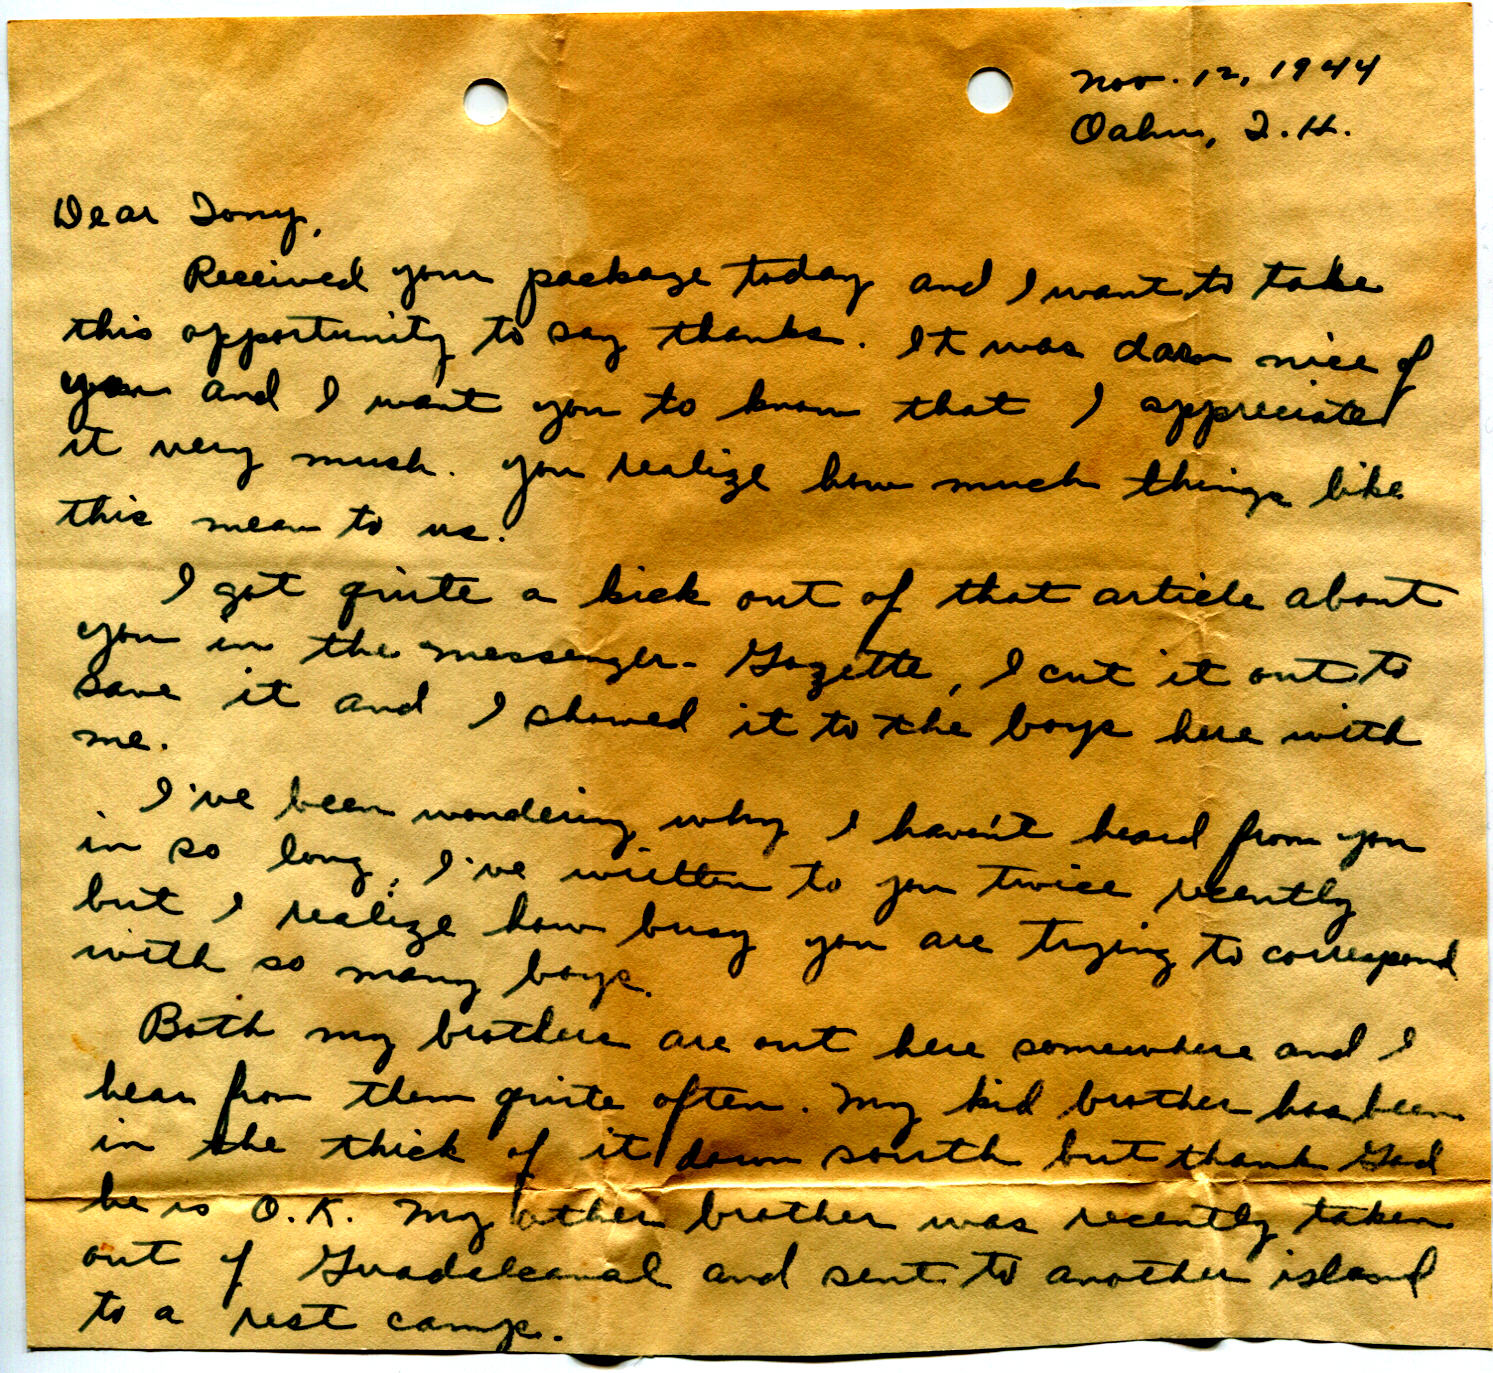 Nov. 12, 1944
Oahu, T.H.
Dear Tony,
Received your package today and I want to take
this opportunity to say thanks. It was darn nice of
you and I want you to know that I appreciated
it very much. You realize how much things like
this mean to us.
I got quite a kick out of that article about
you in the Messenger-Gazette, I cut it out to
save it and I showed it to the boys here with
me.
I've been wondering why I haven't heard from you
in so long; I've written to you twice recently
but I realize how busy you are trying to correspond
with so many boys.
Both my brothers are out here somewhere and I
hear from them quite often. My kid brother has been
in the thick of it down south but thank God
he is O.K. My other brother was recently taken
out of Guadalcanal and sent to another island
to a rest camp.